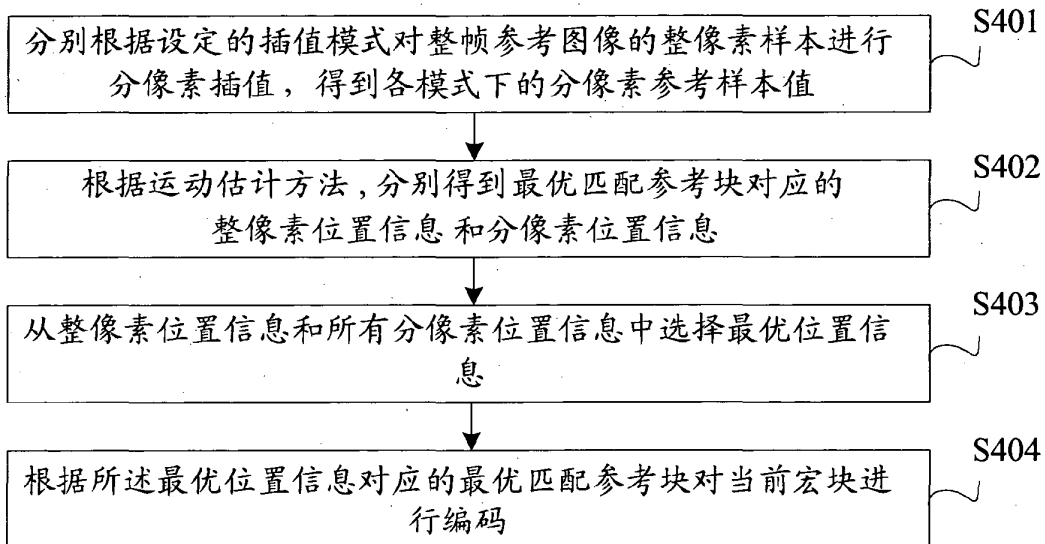 分别根据设定的插值模式对整帧参考图像的整像素样本进行
分像素插值，得到各模式下的分像素参考样本值
S401
根据运动估计方法,分别得到最优匹配参考块对应的
整像素位置信息和分像素位置信息
S402
从整像素位置信息和所有分像素位置信息中选择最优位置信
息
S403
根据所述最优位置信息对应的最优匹配参考块对当前宏块进
行编码
S404